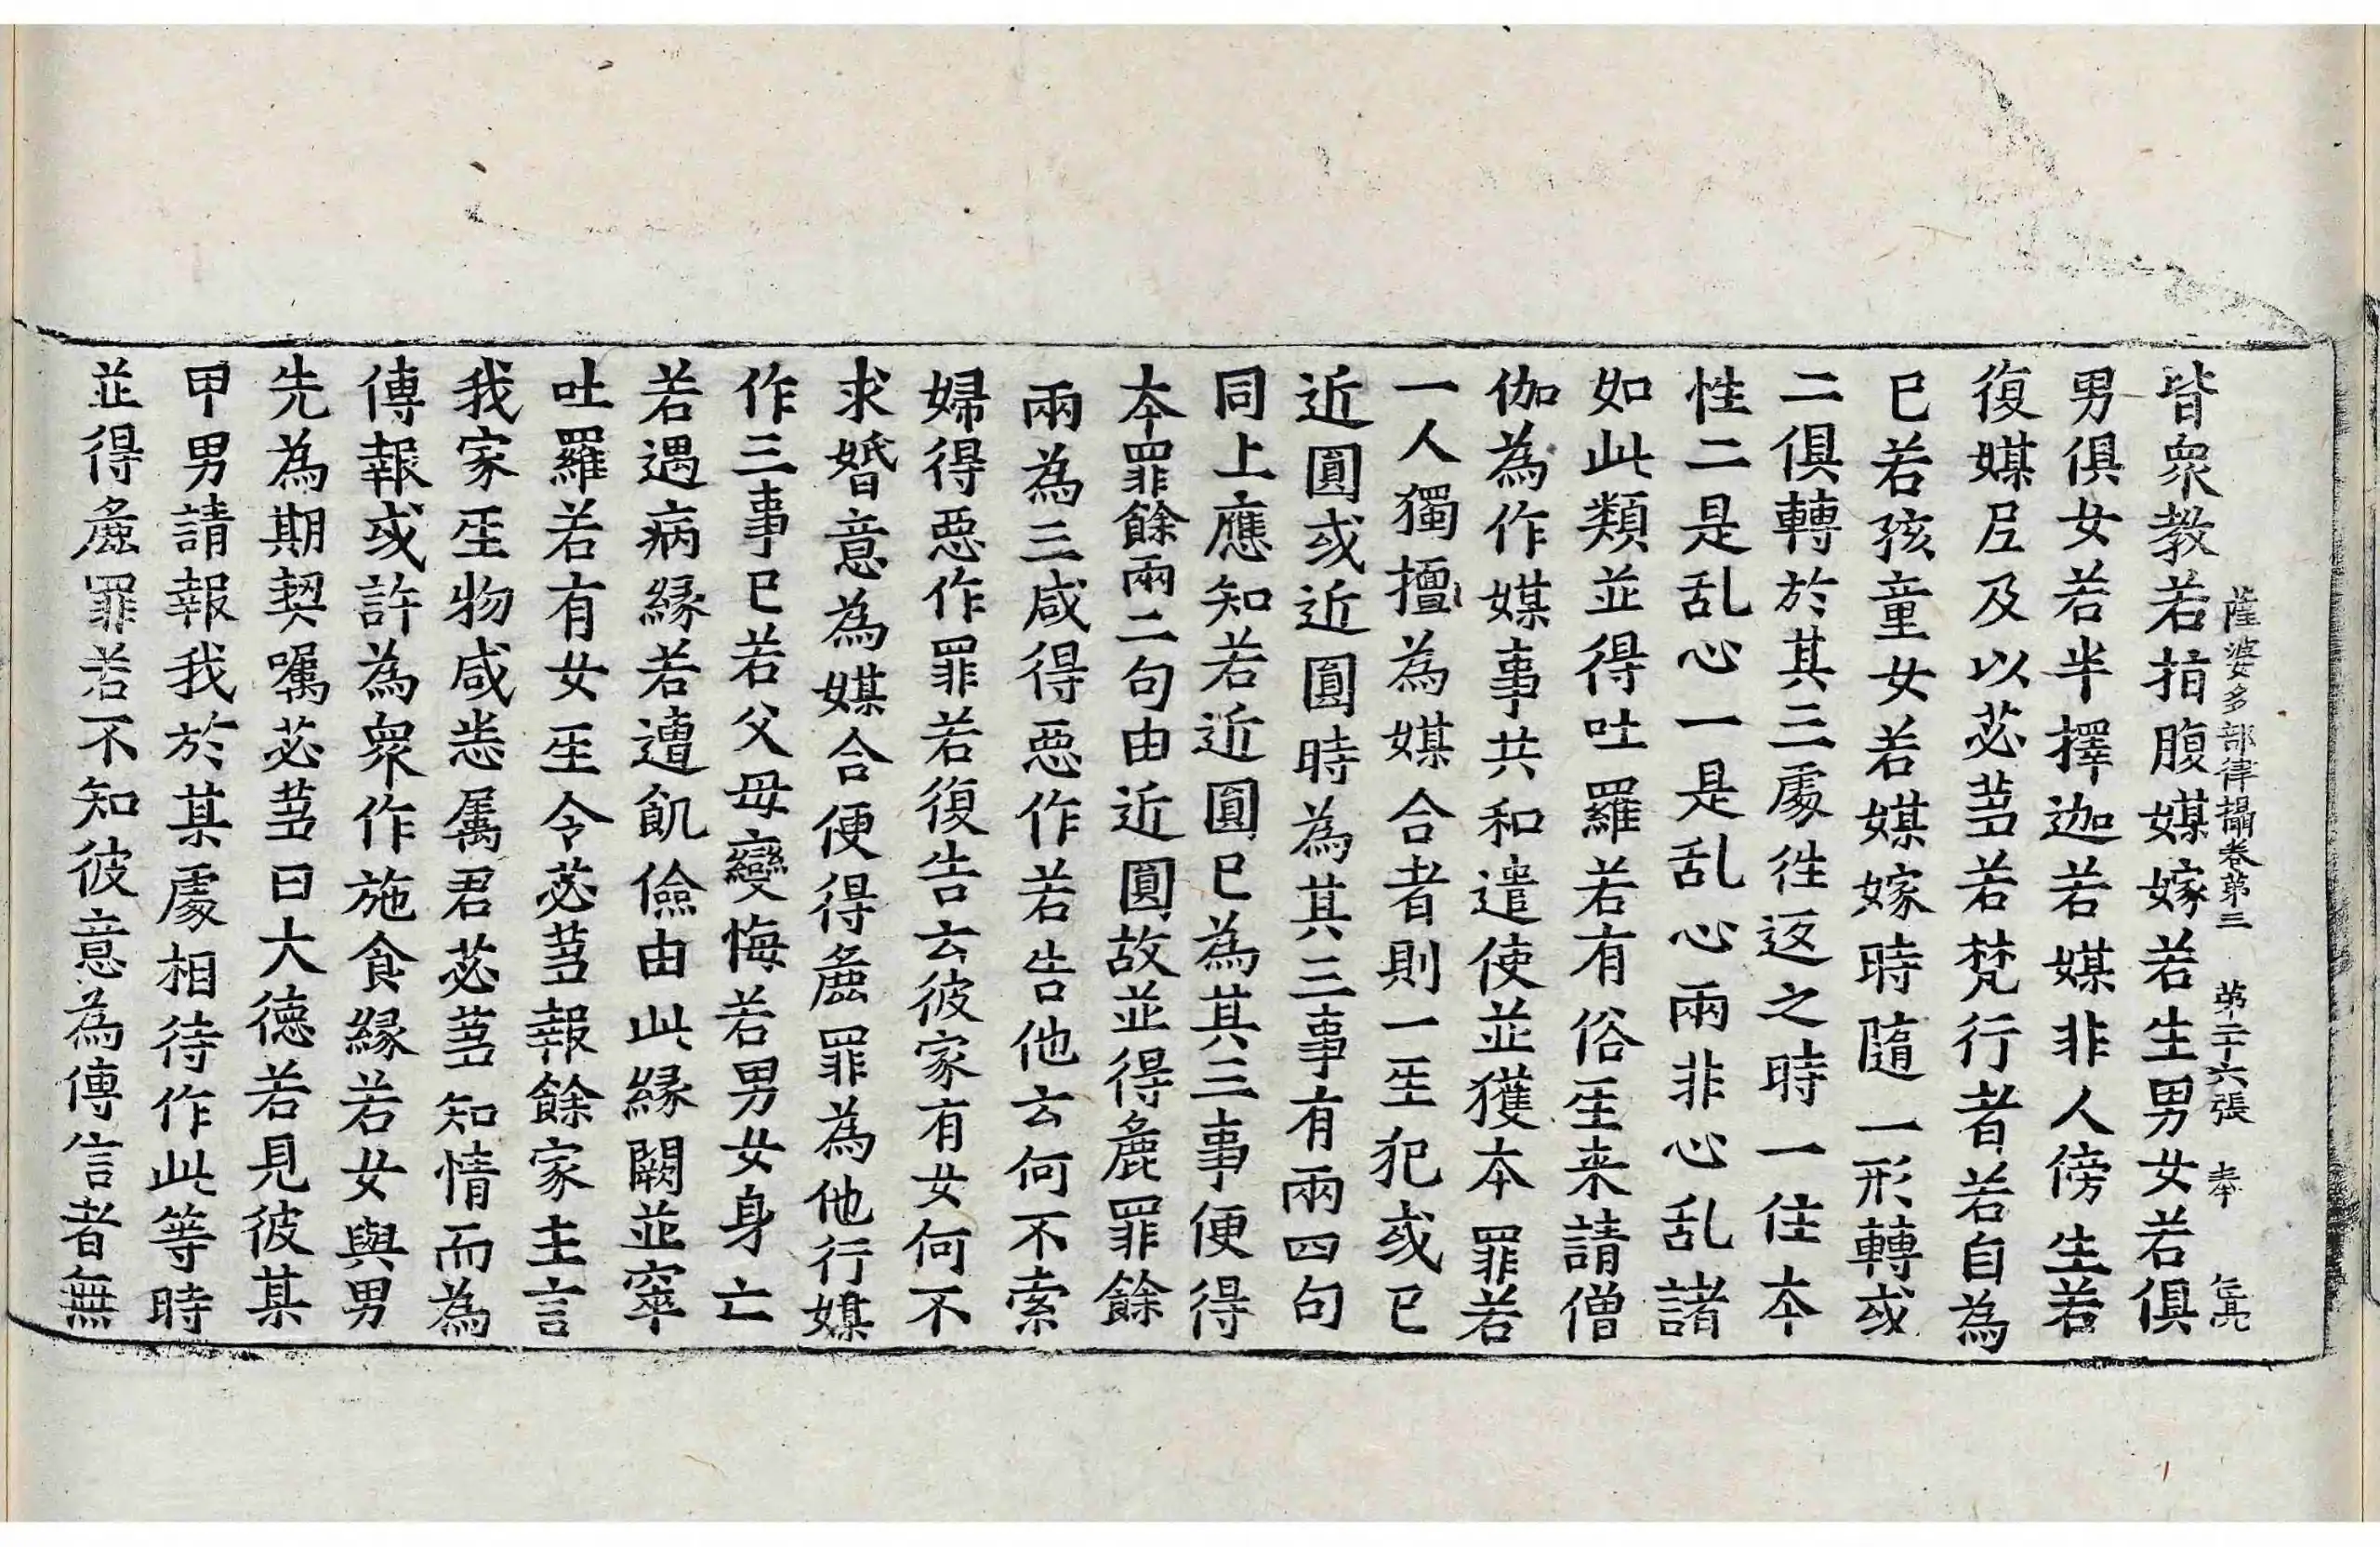 皆衆教若指腹媒嫁若生男女若俱
薩婆多部律攝卷第三　第二十六張　奉
男俱女若半擇迦若媒非人傍生若
復媒𡰱及以苾蒭若梵行者若自為
已若孩童女若媒嫁時隨一形轉或
二俱轉於其三處往返之時一住本
性二是乱心一是乱心兩非心乱諸
如此類並得吐羅若有俗生来請僧
伽為作媒事共和遣使並獲本罪若
一人獨擅為媒合者則一生犯或已
近圓或近圓時為其三事有兩四句
同上應知若近圓已為其三事便得
本罪餘兩二句由近圓故並得麁罪餘
兩為三咸得惡作若告他云何不索
婦得惡作罪若復告云彼家有女何不
求婚意為媒合便得麁罪為他行媒
作三事已若父母變悔若男女身亡
若遇病緣若遭飢儉由此緣闕並窣
吐羅若有女生令苾蒭報餘家主言
我家生物咸悉属君苾蒭知情而為
傳報或許為衆作施食緣若女與男
先為期契囑苾蒭曰大德若見彼某
甲男請報我於某處相待作此等時
並得麁罪若不知彼意為傳信者無